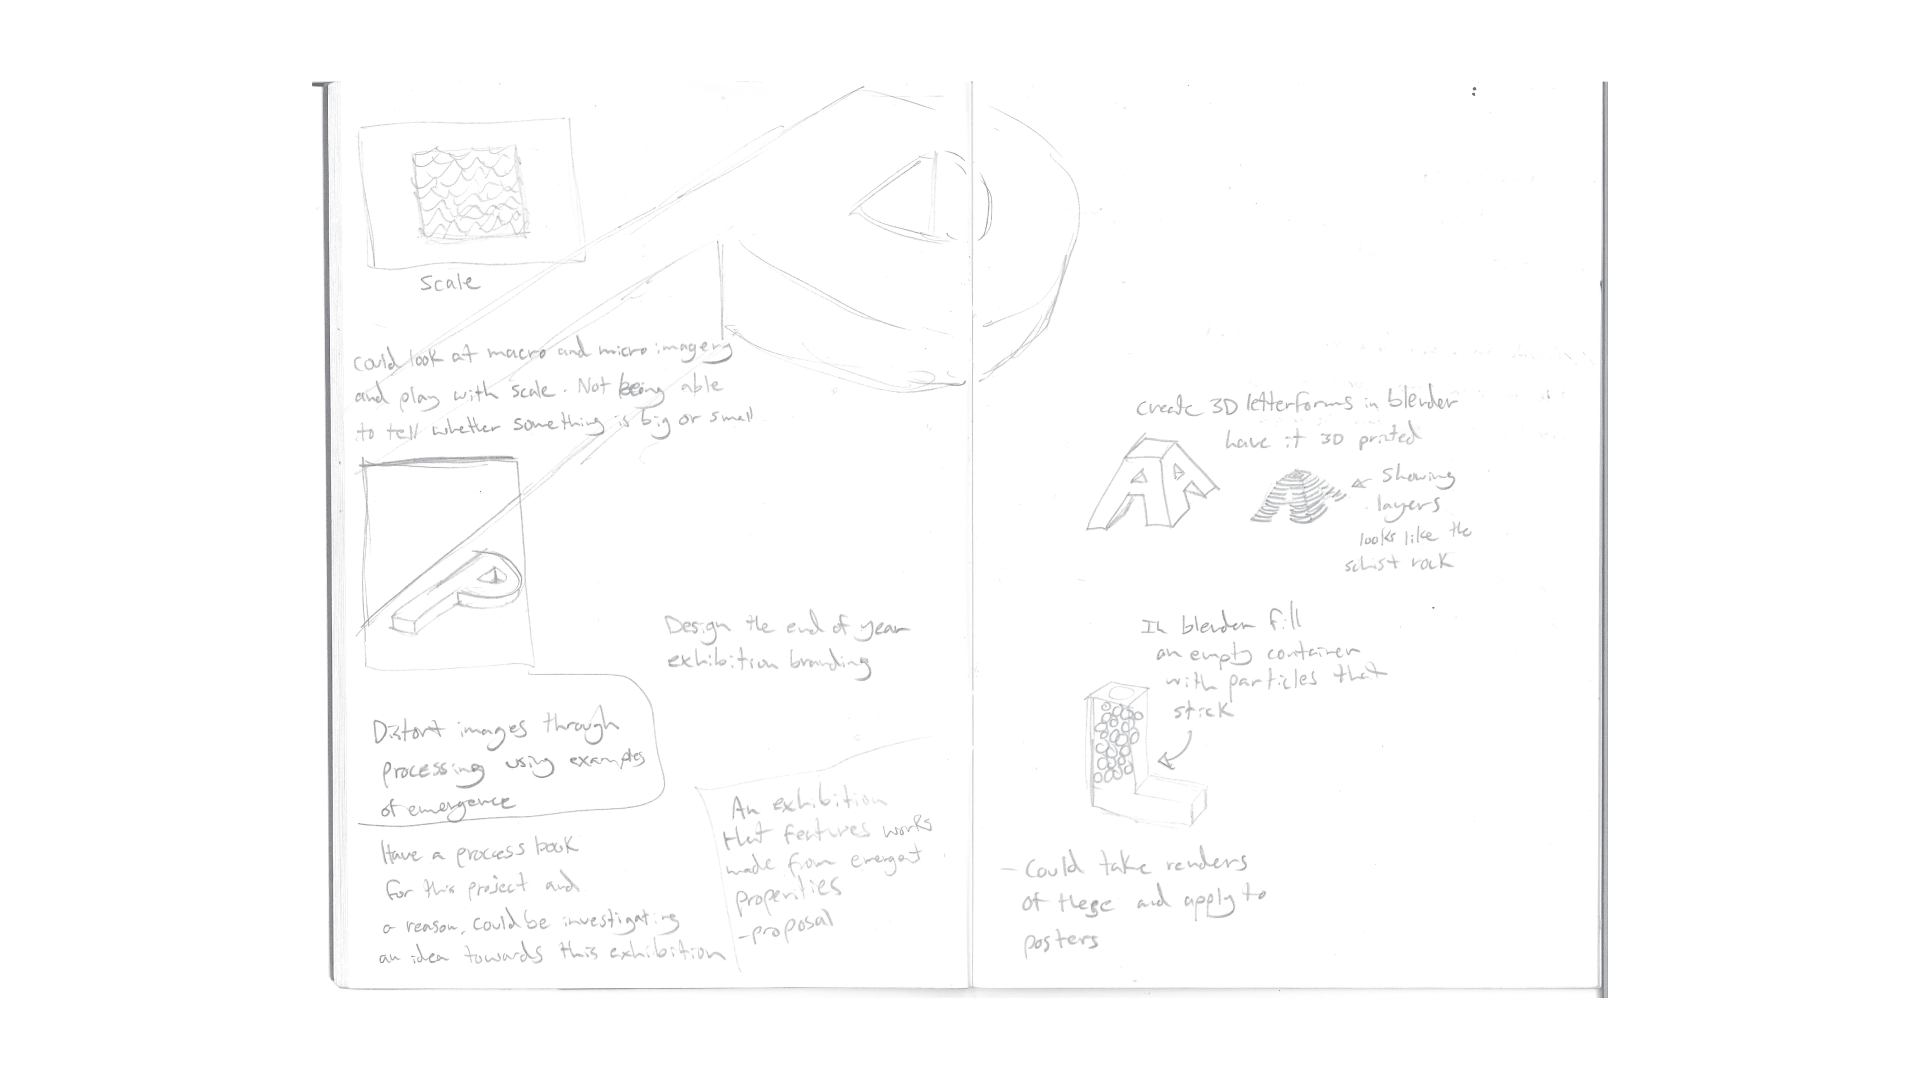 Scale
Could look at macro and micro imagery
and play with scale. Not being able
to tell whether something is big or small
Design the end of year
exhibition branding
Distort images through
processing using examples
of emergence
Have a process book
for this project and
a reason, could be investigating
an idea towards this exhibition
An exhibition
that features works
made from emergent
properities
-proposal
create 3D letterforms in blender
have it 3D printed
showing
layers
looks like the
schist rock
In blender fill
an empty container
with particles that
stick
- Could take renders
of these and apply to
posters